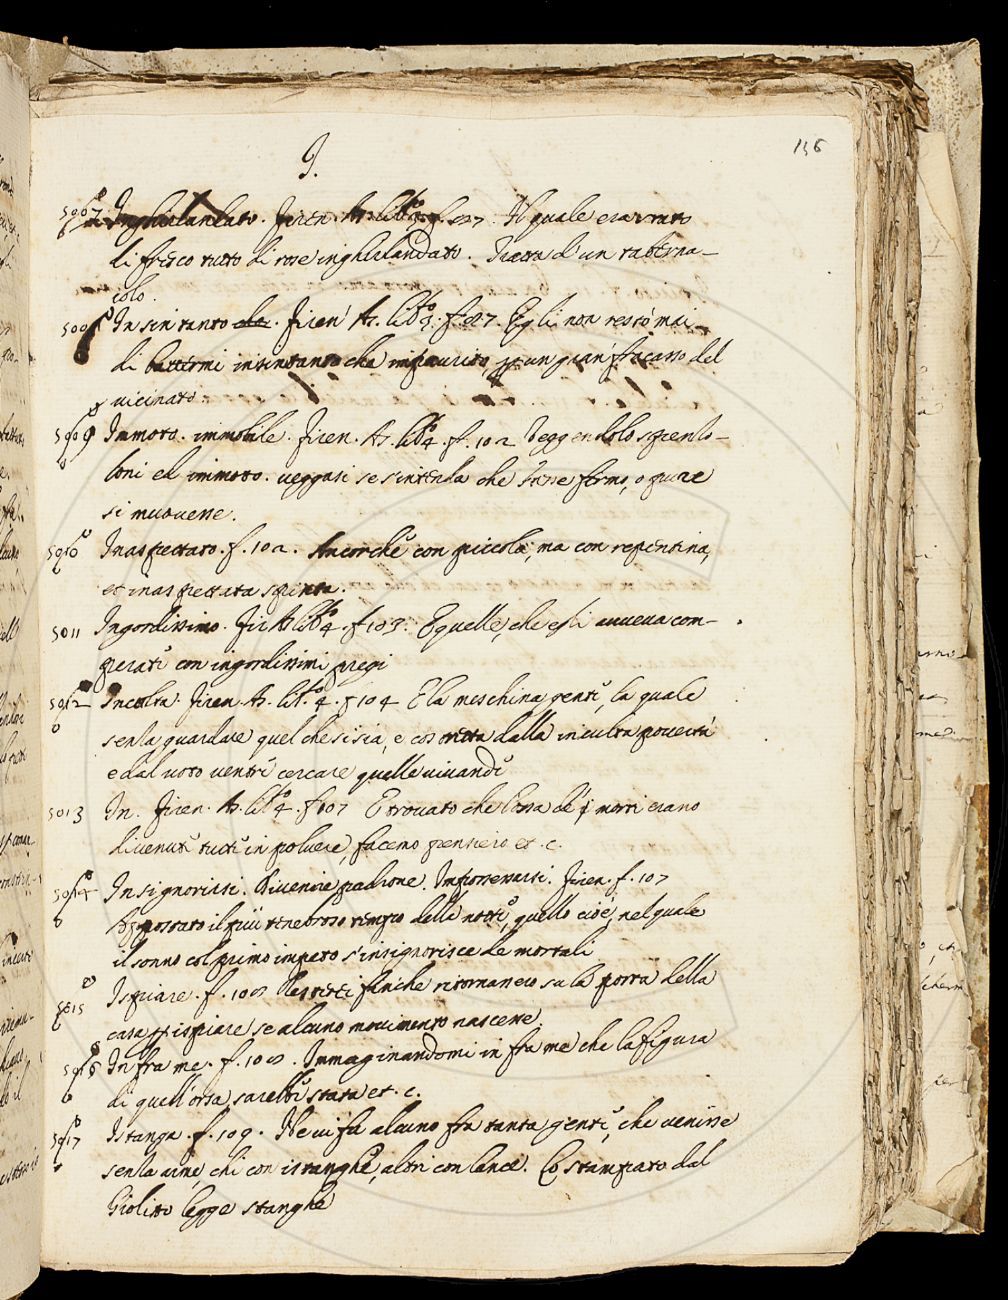 I.
136
5007 Inghirlandato. Firen. As. lib.º 3. f. 87. Il quale era stato
di fresco tutto di rose inghirlandato. Tratta d'un taberna-
colo.
5008 In sin tanto che. Firen. As. lib.º 3. f. 87. Egli non restò mai
di battermi insintanto che impaurito, p un gran fracasso del
vicinato.
5009 Immoto. immobile. Firen. As. lib.º 4. f. 102 Veggendolo spenlo-
loni ed immoto. veggasi se s'intenda che stesse fermo, o pure
si muovesse.
5010 Inaspettato. f. 102. Ancorché con piccola, ma con repentina,
et inaspettata spinta.
5011 Ingordissimo. Fir. As. lib.º 4. f. 103. E quelle, che egli aveva com-
perati con ingordissimi pregi
5012 Inculta. Firen. As. lib.º 4. f. 104 E la meschina gente, la quale
senza guardare quel che si sia, è costretta dalla inculta povertà
e dal voto ventre cercare quelle vivande
5013 In. Firen. As. lib.º 4. f. 107 E trovato che l'ossa de i morti erano
divenute tutte in polvere, facemo pensiero et. c.
5014 Insignorirsi. divenire padrone. Impossessarsi. Firen. f. 107
Appostato il più tenebroso tempo della notte, quello cioè, nel quale
il sonno col primo impeto s'insignorisce de mortali
5015 Ispiare. f. 108 ritornano su la porta della
casa p ispiare se alcuno movimento nascesse
5016 In fra me. f. 108. Immaginandomi in fra me che la figura
di quell'orsa sarebbe stata et. c.
5017 Istanga. f. 109. Ne vi fu alcuno fra tanta gente, che venisse
senza arme, chi con istanghe, altri con lance. Lo stampato dal
Giolito legge stanghe